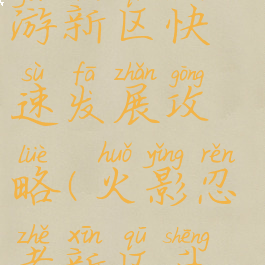 游新区快
sù fā zhǎn gōng
速发展攻
lüè huǒ yǐng rěn
略(火影忍
zhě xīn qū shēng
者新区升